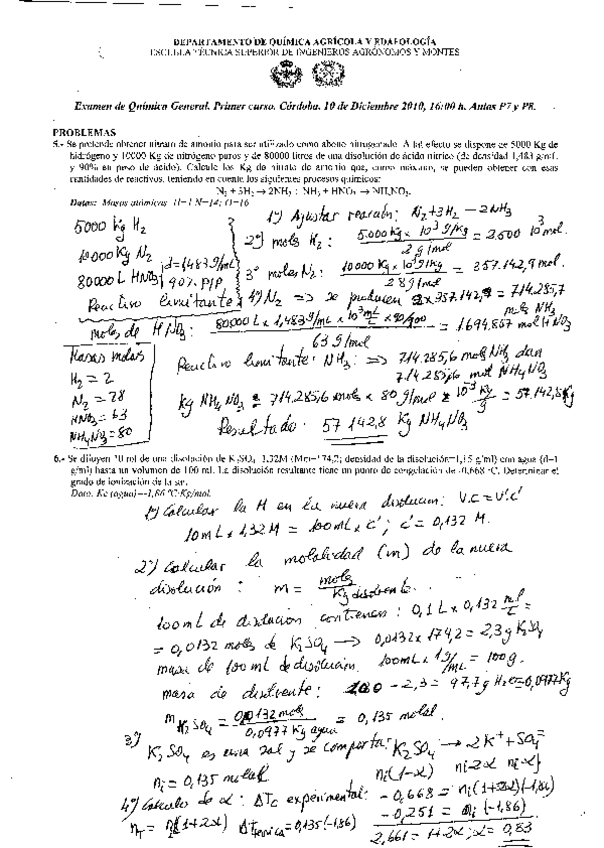 DEPARTAMENTO DE QUÍMICA AGRÍCOLA Y EDAFOLOGÍA
ESCUELA TÉCNICA SUPERIOR DE INGENIEROS AGRÓNOMOS Y MONTES
Examen de Química General. Primer curso. Córdoba. 10 de Diciembre 2010, 16:00 h. Aulas P7 y P8.
PROBLEMAS
5.- Se pretende obtener nitrato de amonio para ser utilizado como abono nitrogenado. A tal efecto se dispone de 5000 Kg de
hidrógeno y 10000 Kg de nitrógeno puros y de 80000 litros de una disolución de ácido nítrico (de densidad 1,483 g/mL
y 90% en peso de ácido). Calcule los Kg de nitrato de amonio que, como máximo, se pueden obtener con esas
cantidades de reactivos, teniendo en cuenta los siguientes procesos químicos:
N₂ + 3H₂ → 2NH₃ ; NH₃ + HNO₃ → NH₄NO₃.
Datos: Masas atómicas H=1 N=14; O=16
1º) Ajustar reacción: N₂+3H₂ — 2NH₃
5000 Kg H₂
2º) moles H₂: 5.000 Kg x 10³ g/Kg / 2 g/mol = 2.500 10³ mol.
10000 Kg N₂
80000 L HNO₃ d=1,483 g/mL 90% P/P
3º moles N₂: 10000 Kg x 10³ g/Kg / 28 g/mol = 357.142,9 mol.
Reactivo limitante 4º) N₂ => se producen 2x357.142,9 = 714.285,7 mols NH₃
moles de HNO₃: 80000 L x 1,483 g/mL x 10³ mL/L x 90/100 / 63 g/mol = 1.694.857 mol HNO₃
Masas molars
H₂ = 2
N₂ = 28
HNO₃ = 63
NH₄NO₃ = 80
Reactivo limitante: NH₃: => 714.285,6 mols NH₃ dan
714.285,6 mol NH₄NO₃
Kg NH₄NO₃ = 714.285,6 mols x 80 g/mol x 10⁻³ Kg/g = 57.142,8 Kg
Resultado: 57.142,8 Kg NH₄NO₃
6.- Se diluyen 10 ml de una disolución de K₂SO₄ 1,32M (Mm=174,2; densidad de la disolución=1,15 g/ml) con agua (d=1
g/ml) hasta un volumen de 100 ml. La disolución resultante tiene un punto de congelación de -0,668 ºC. Determinar el
grado de ionización de la sal.
Dato. Kc (agua)=-1,86 ºC·Kg/mol.
1º) Calcular la M en la nueva disolucion: V.C = V'.C'
10 mL x 1,32 M = 100 mL x C' ; C' = 0,132 M.
2º) Calcular la molalidad (m) de la nueva
disolución : m = mols / Kg disolvente.
100 mL de disolución contienen: 0,1 L x 0,132 mol/L =
= 0,0132 moles de K₂SO₄ → 0,0132 x 174,2 = 2,3 g K₂SO₄
masa de 100 mL de disolución: 100 mL x 1 g/mL = 100 g.
masa de disolvente: 100 - 2,3 = 97,7 g H₂O = 0,0977 Kg
m K₂SO₄ = 0,0132 mols / 0,0977 Kg agua = 0,135 molal.
3º)
K₂SO₄ es una sal y se comporta: K₂SO₄ → 2K⁺ + SO₄⁼
ni = 0,135 molal ni(1-α) ni·2α ni·α
4º) Calculo de α: ΔTc experimental: -0,668 = ni(1+2α)(-1,86)
nT = ni(1+2α) ΔTteorica = 0,135(-1,86) -0,251 = ni (-1,86)
2,661 = 1+2α ; α = 0,83